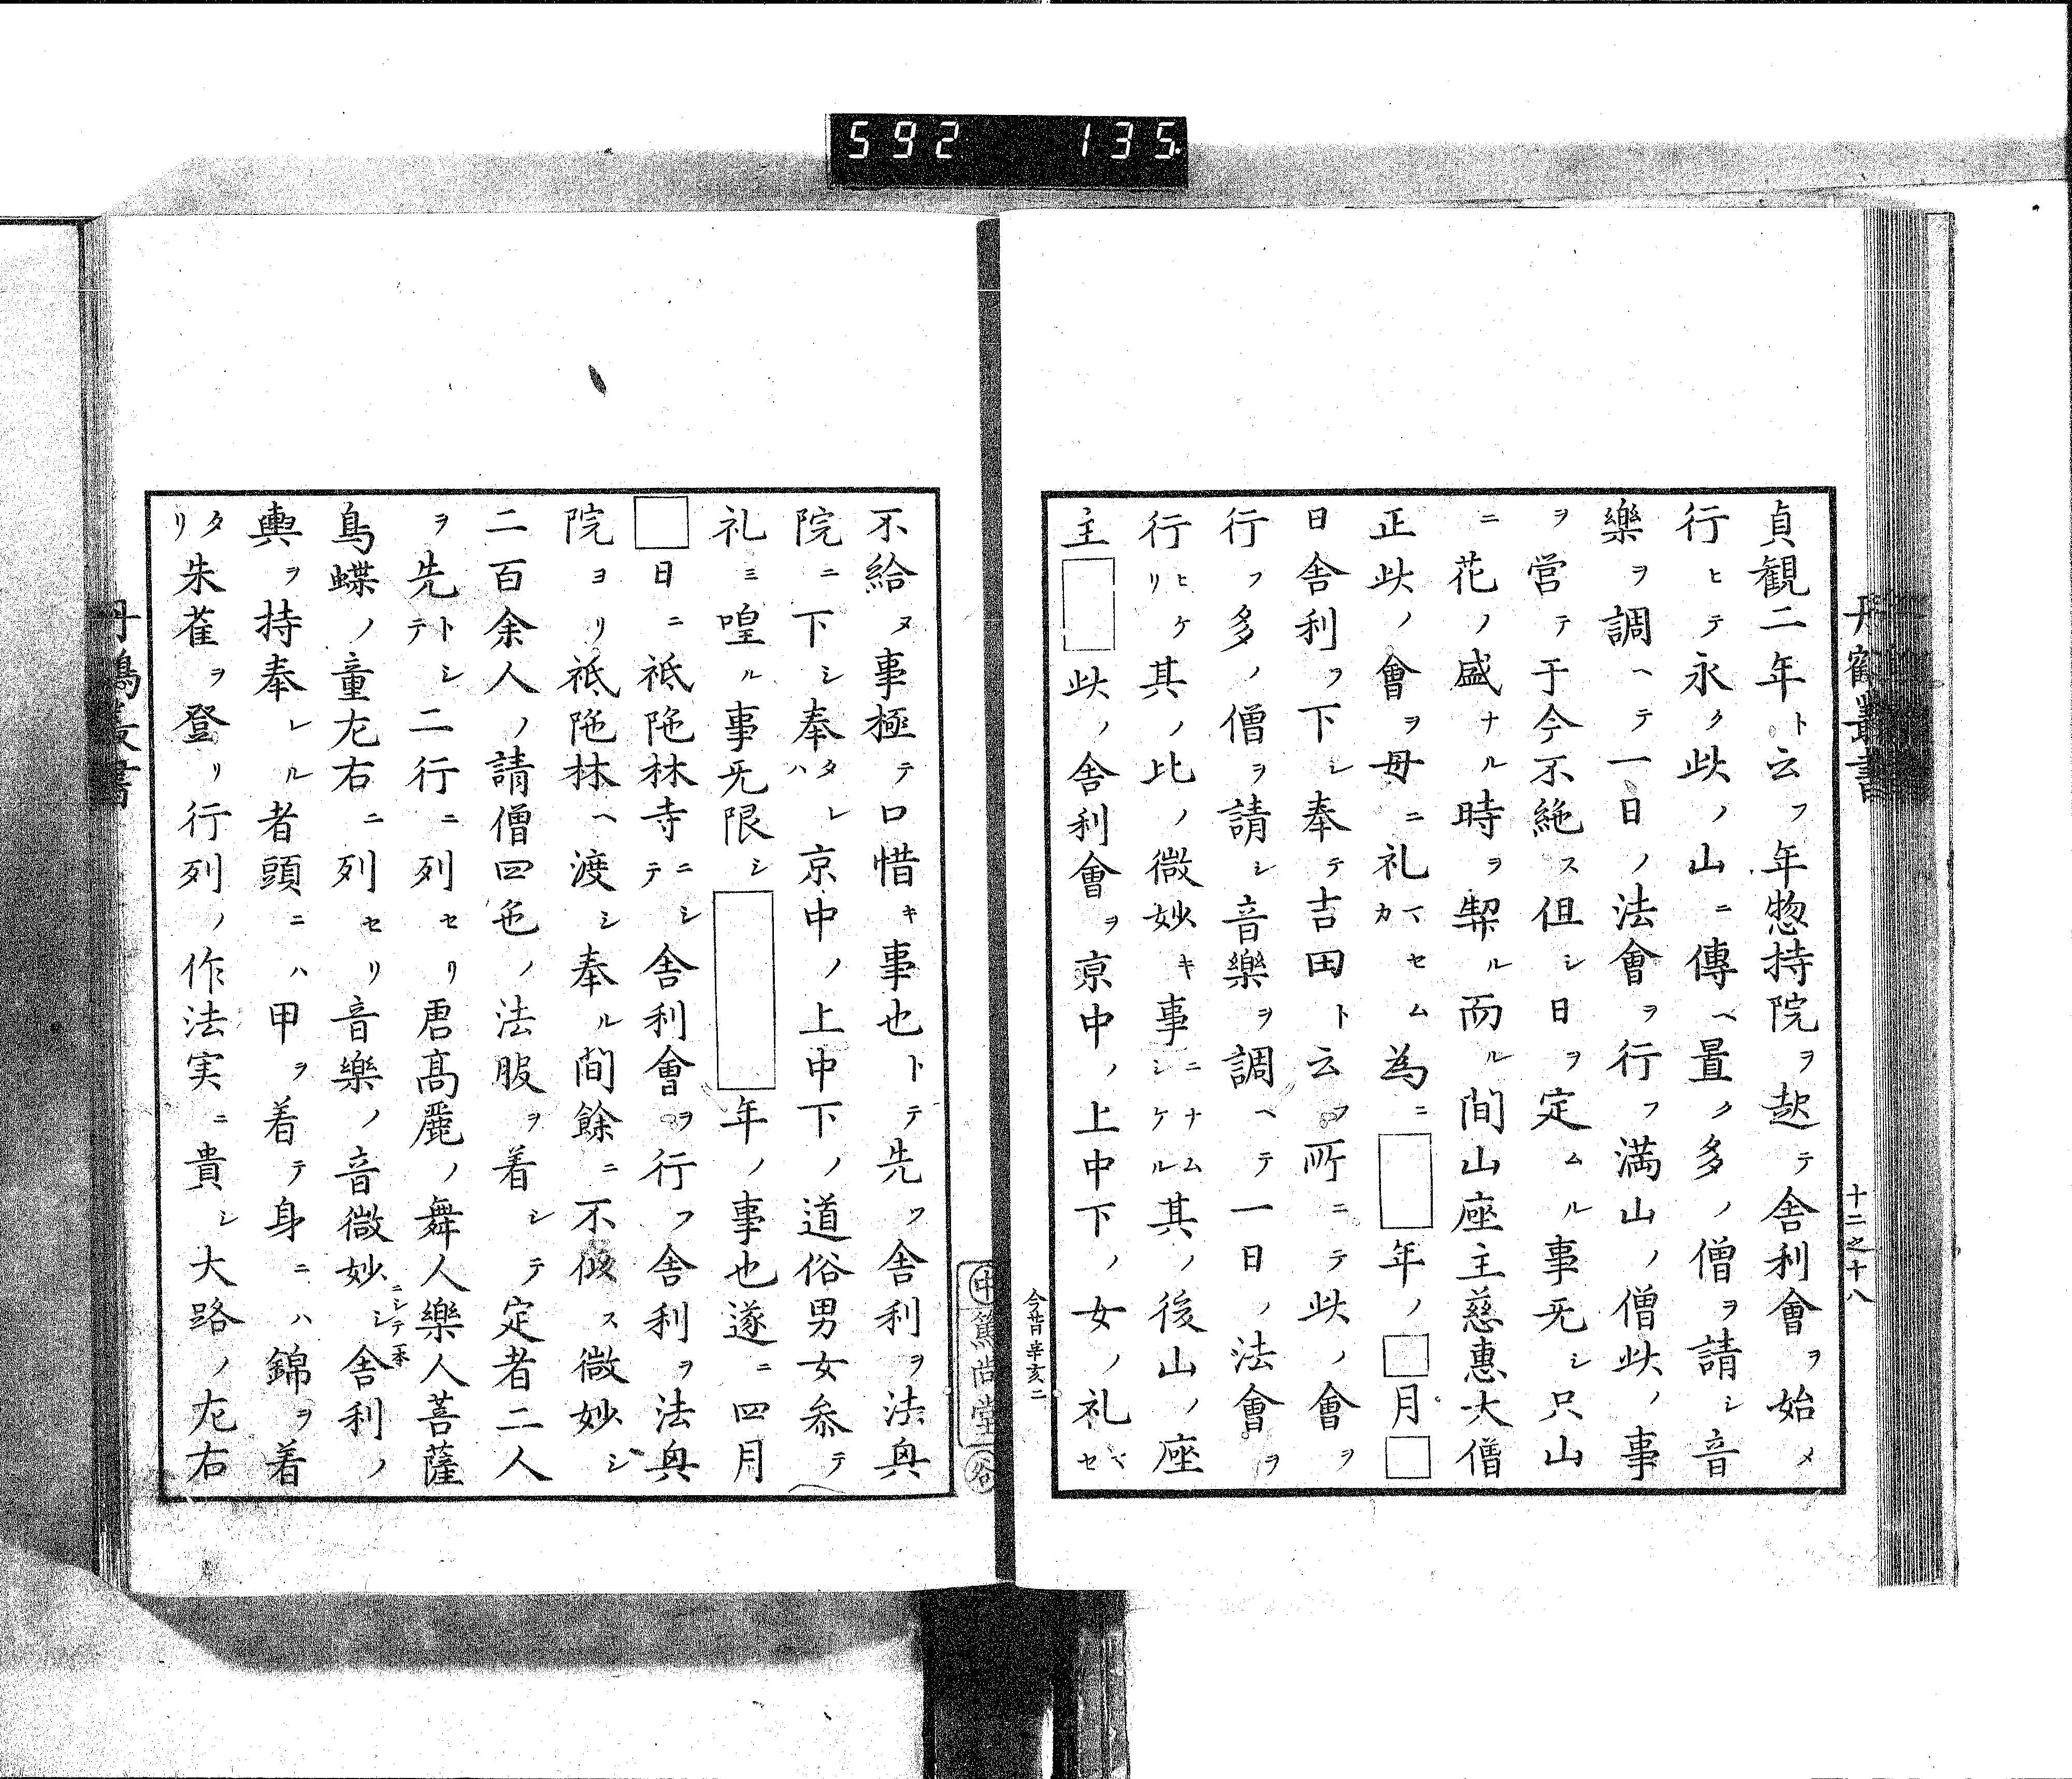 592 135
丹鶴叢書
十二之十八
貞観二年ト云フ年惣持院ヲ起テ舎利會ヲ始メ
行ヒテ永ク此ノ山ニ傳ヘ置ク多ノ僧ヲ請シ音
樂ヲ調ヘテ一日ノ法會ヲ行フ満山ノ僧此ノ事
ヲ営テ于今不絶ス但シ日ヲ定ムル事旡シ只山
ニ花ノ盛ナル時ヲ契ル而ル間山座主慈惠大僧
正此ノ會ヲ母ニ礼マカセム為ニ□年ノ□月□
日舎利ヲ下シ奉テ吉田ト云フ所ニテ此ノ會ヲ
行フ多ノ僧ヲ請シ音樂ヲ調ヘテ一日ノ法會ヲ
行ヒケリ其ノ比ノ微妙キ事ニナムシケル其ノ後山ノ座
主□此ノ舎利會ヲ京中ノ上中下ノ女ノ礼マセ
今昔辛亥二
不給ヌ事極テ口惜キ事也トテ先ツ舎利ヲ法興
院ニ下シ奉タレハ京中ノ上中下ノ道俗男女参テ
礼ミ喤ル事旡限シ□年ノ事也遂ニ四月
□日ニ祗陁林寺ニシテ舎利會ヲ行フ舎利ヲ法興
院ヨリ祗陁林ヘ渡シ奉ル間餘ニ不似ス微妙シ
二百余人ノ請僧四色ノ法服ヲ着シテ定者二人
ヲ先トシテ二行ニ列セリ唐髙麗ノ舞人樂人菩薩
鳥蝶ノ童左右ニ列セリ音樂ノ音微妙シニシテ本舎利ノ
輿ヲ持奉レル者頭ニハ甲ヲ着テ身ニハ錦ヲ着
タリ朱雀ヲ登リ行列ノ作法実ニ貴シ大路ノ左右
丹鶴叢書